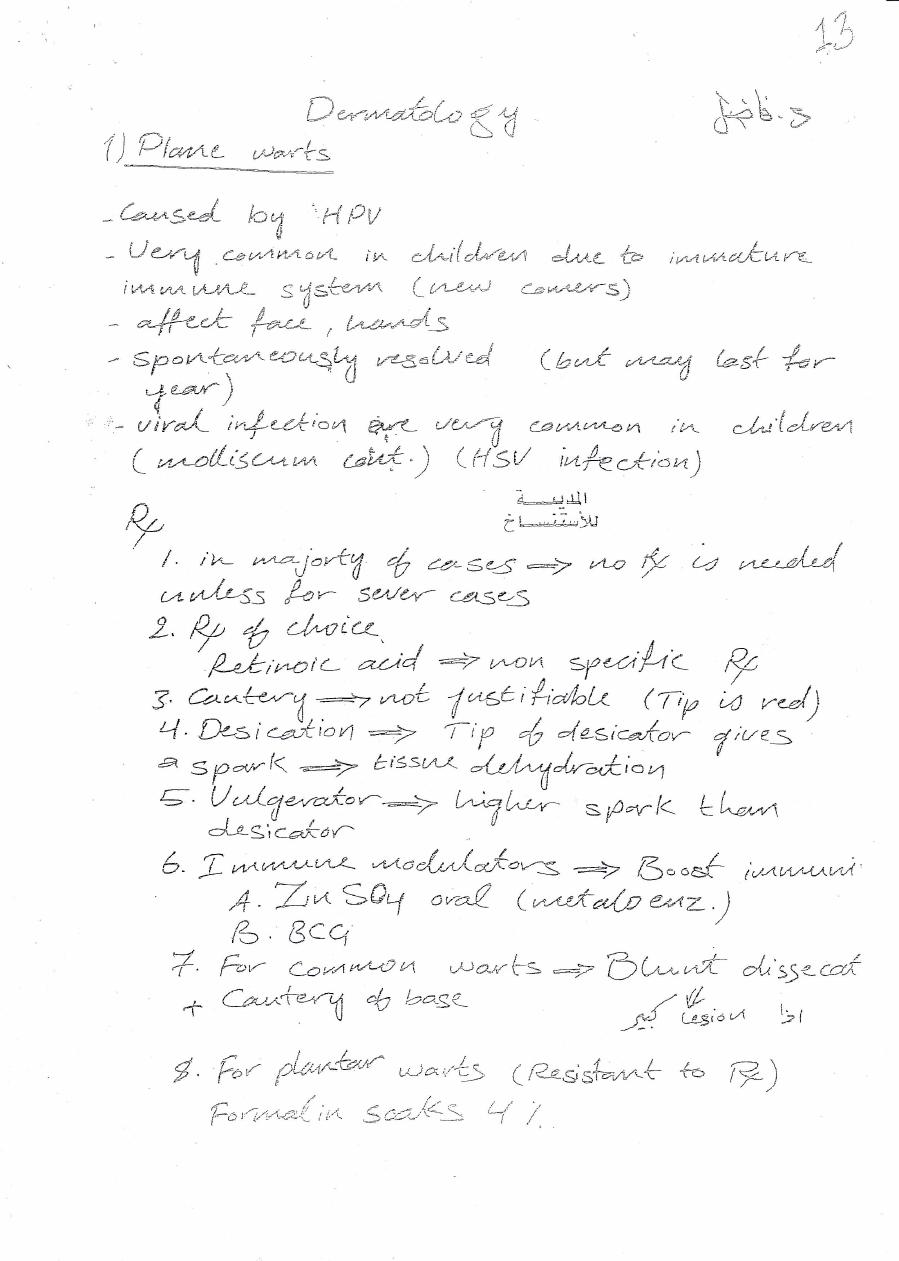 13
Dermatology د. فاضل
1) Plane warts
- Caused by HPV
- Very common in children due to immature
immune system (new comers)
- affect face, hands
- spontaneously resolved (but may last for
year)
- viral infection are very common in children
(molliscum cont.) (HSV infection)
المدينـــة
للأستنســاخ
Rx
1. in majorty of cases ⇒ no Rx is needed
unless for sever cases
2. Rx of choice
Retinoic acid ⇒ non specific Rx
3. Cautery ⇒ not justifiable (Tip is red)
4. Desication ⇒ Tip of desicator gives
a spark ⇒ tissue dehydration
5. Vulgerator ⇒ higher spark than
desicator
6. Immune modulators ⇒ Boost immuni
A. Zin SO4 oral (metalo enz.)
B. BCG
7. For common warts ⇒ Blunt dissecat
+ Cautery of base
اذا Lesion كبير
8. For plantar warts (Resistant to Rx)
Formalin soaks 4 %